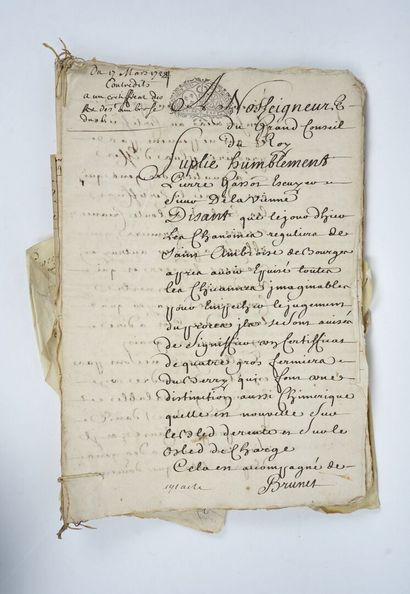 Du 17 Mars 1724
Contredits
a un certificat des
de st ambroise
A Nosseigneurs
du Grand Conseil
Du Roy
Suplie humblement
Pierre Gasson Escuyer
Sieur De la Vienne
Disant que le jour d'hier
Les Chanoines reguliers de
Saint Ambroise de Bourges
apres avoir Epuisé toutes
les Chicannes jmaginables
pour Empescher le jugement
du proces jls se sont auisés
de signiffier un Certifficat
de quatre gros fermiers
du Berry qui font une
distinction aussi Chimerique
quelle est nouvelle sur
le bled de rente et sur le
bled de Charge
Cela est accompagné de
Brunet